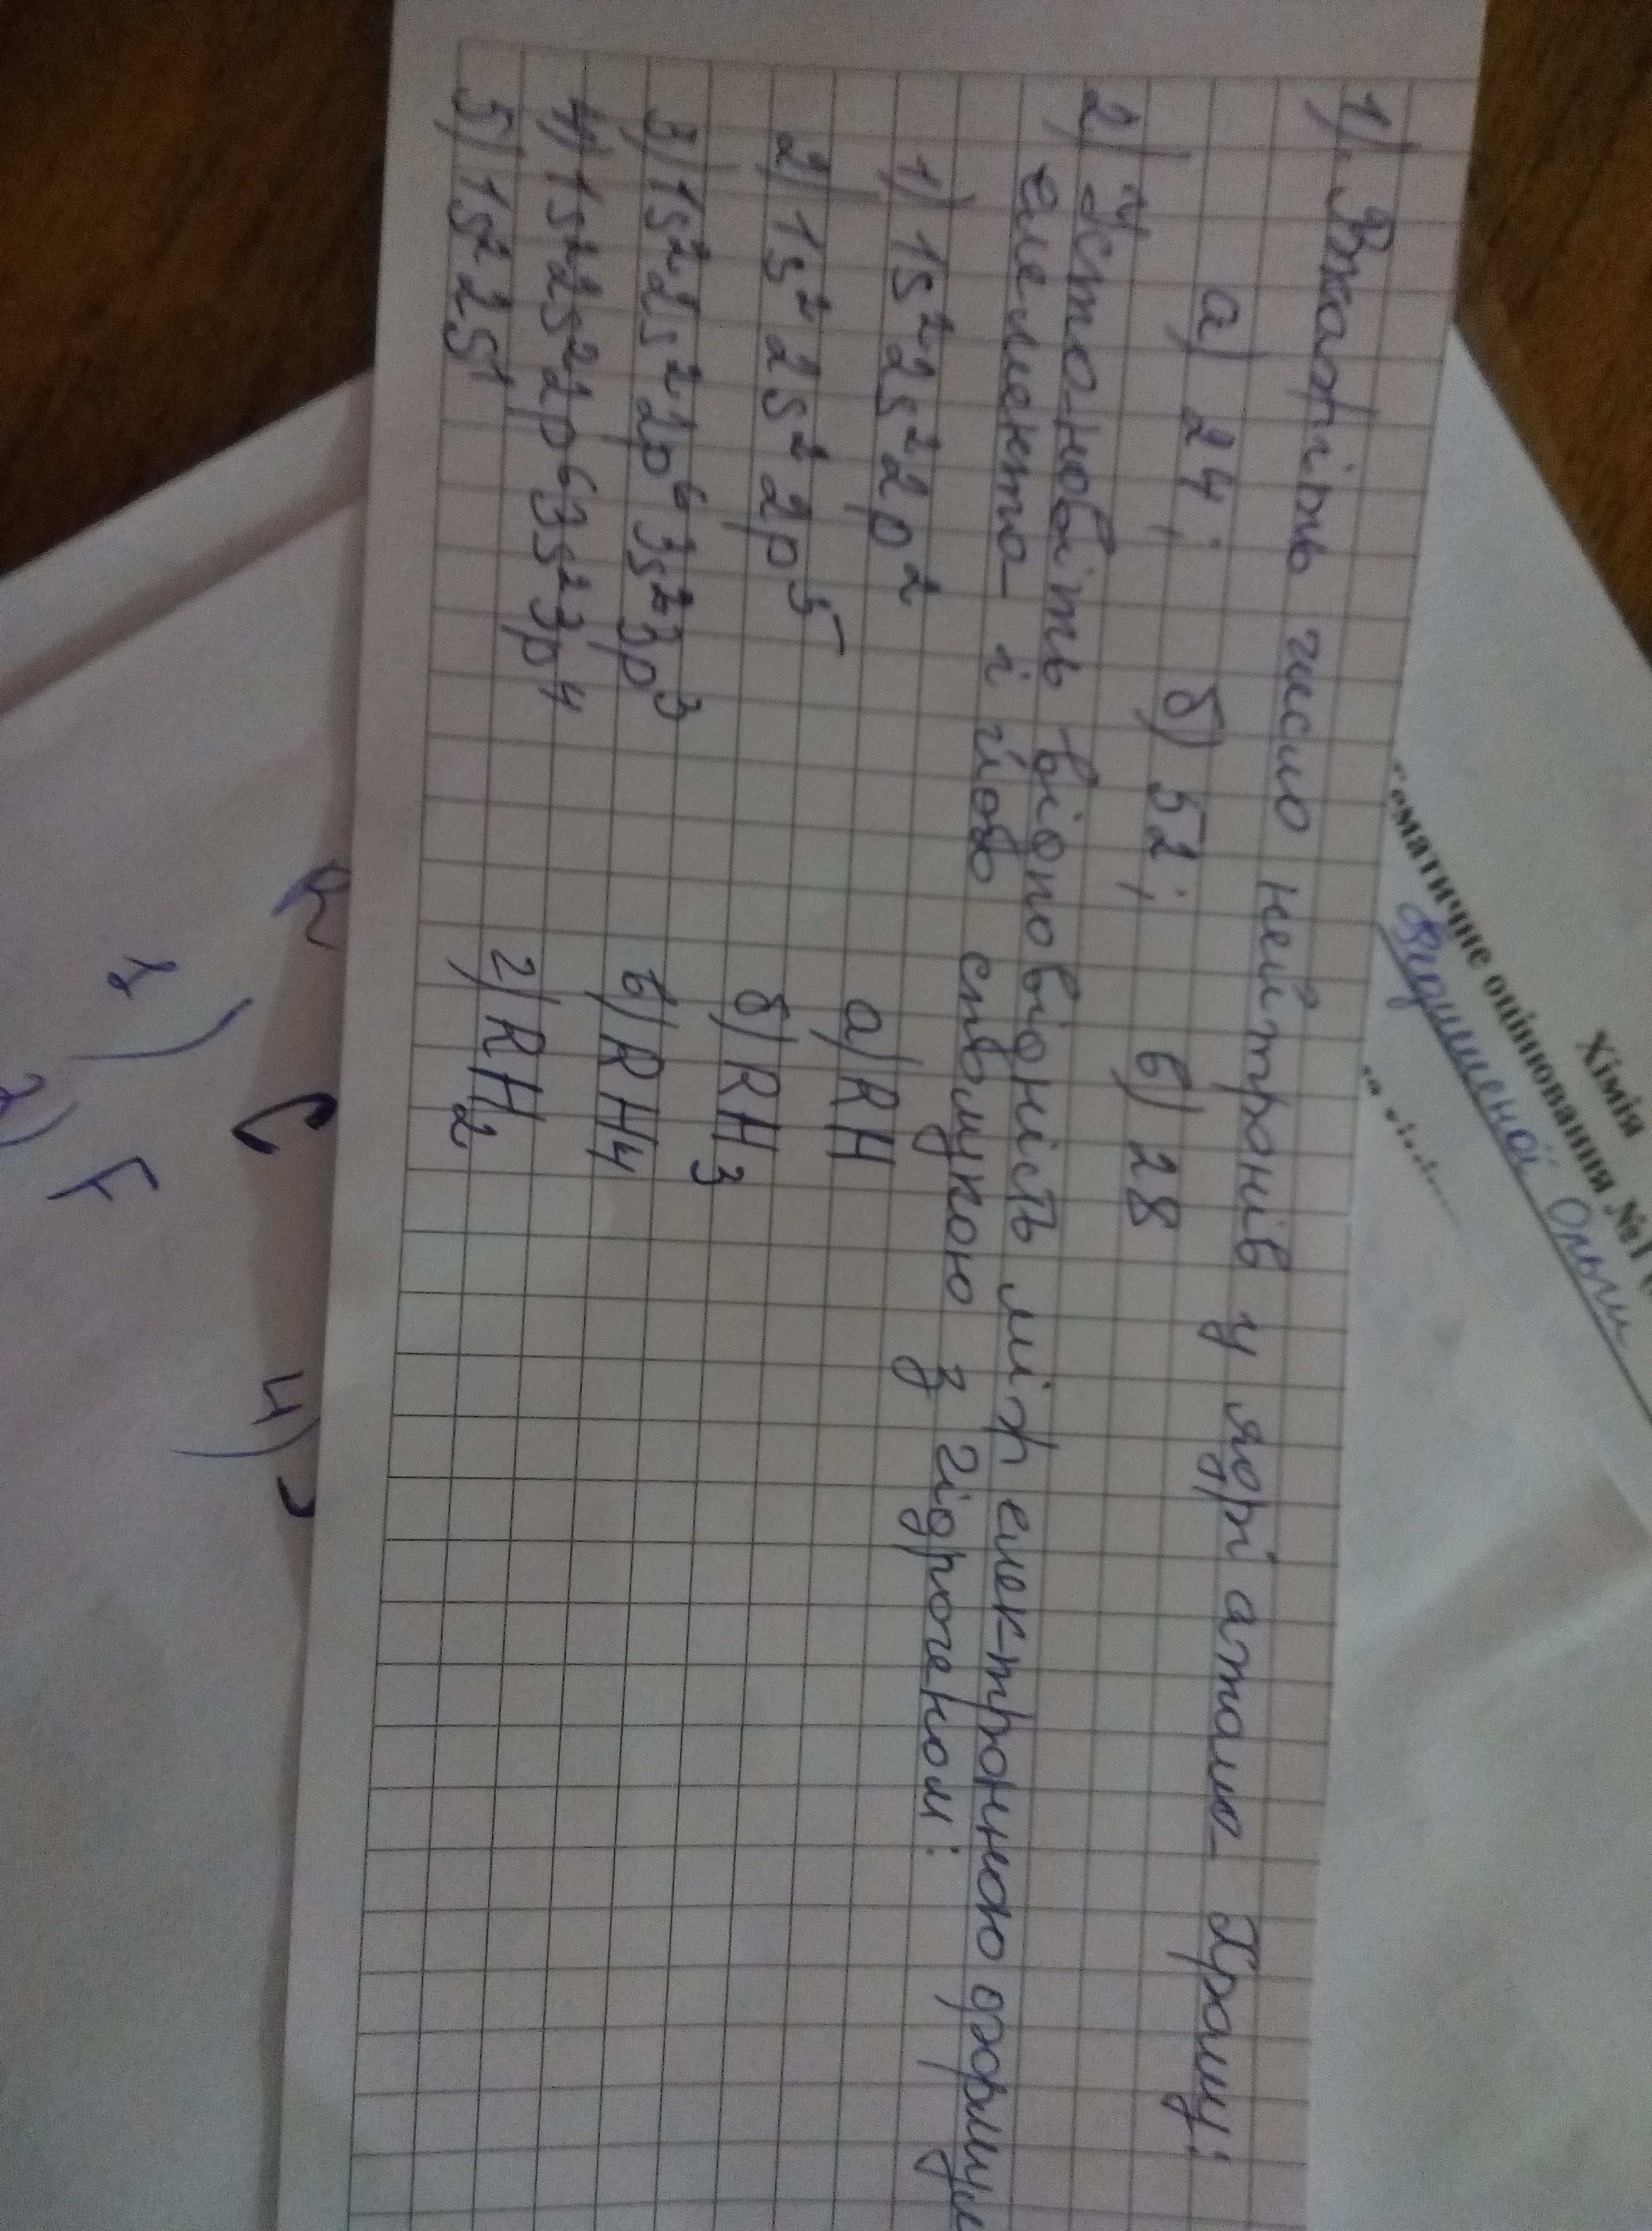 1) Вкажіть число нейтронів у ядрі атома Хрому:
а) 24; б) 52; в) 28
2) Установіть відповідність між електронною формулою
елемента і його сполукою з гідрогеном:
1) 1s² 2s² 2p² а) RH
2) 1s² 2s² 2p⁵ б) RH₃
3) 1s² 2s² 2p⁶ 3s² 3p³ в) RH₄
4) 1s² 2s² 2p⁶ 3s² 3p⁴ г) RH₂
5) 1s² 2s¹
Хімія
оцінювання №1
Ольги